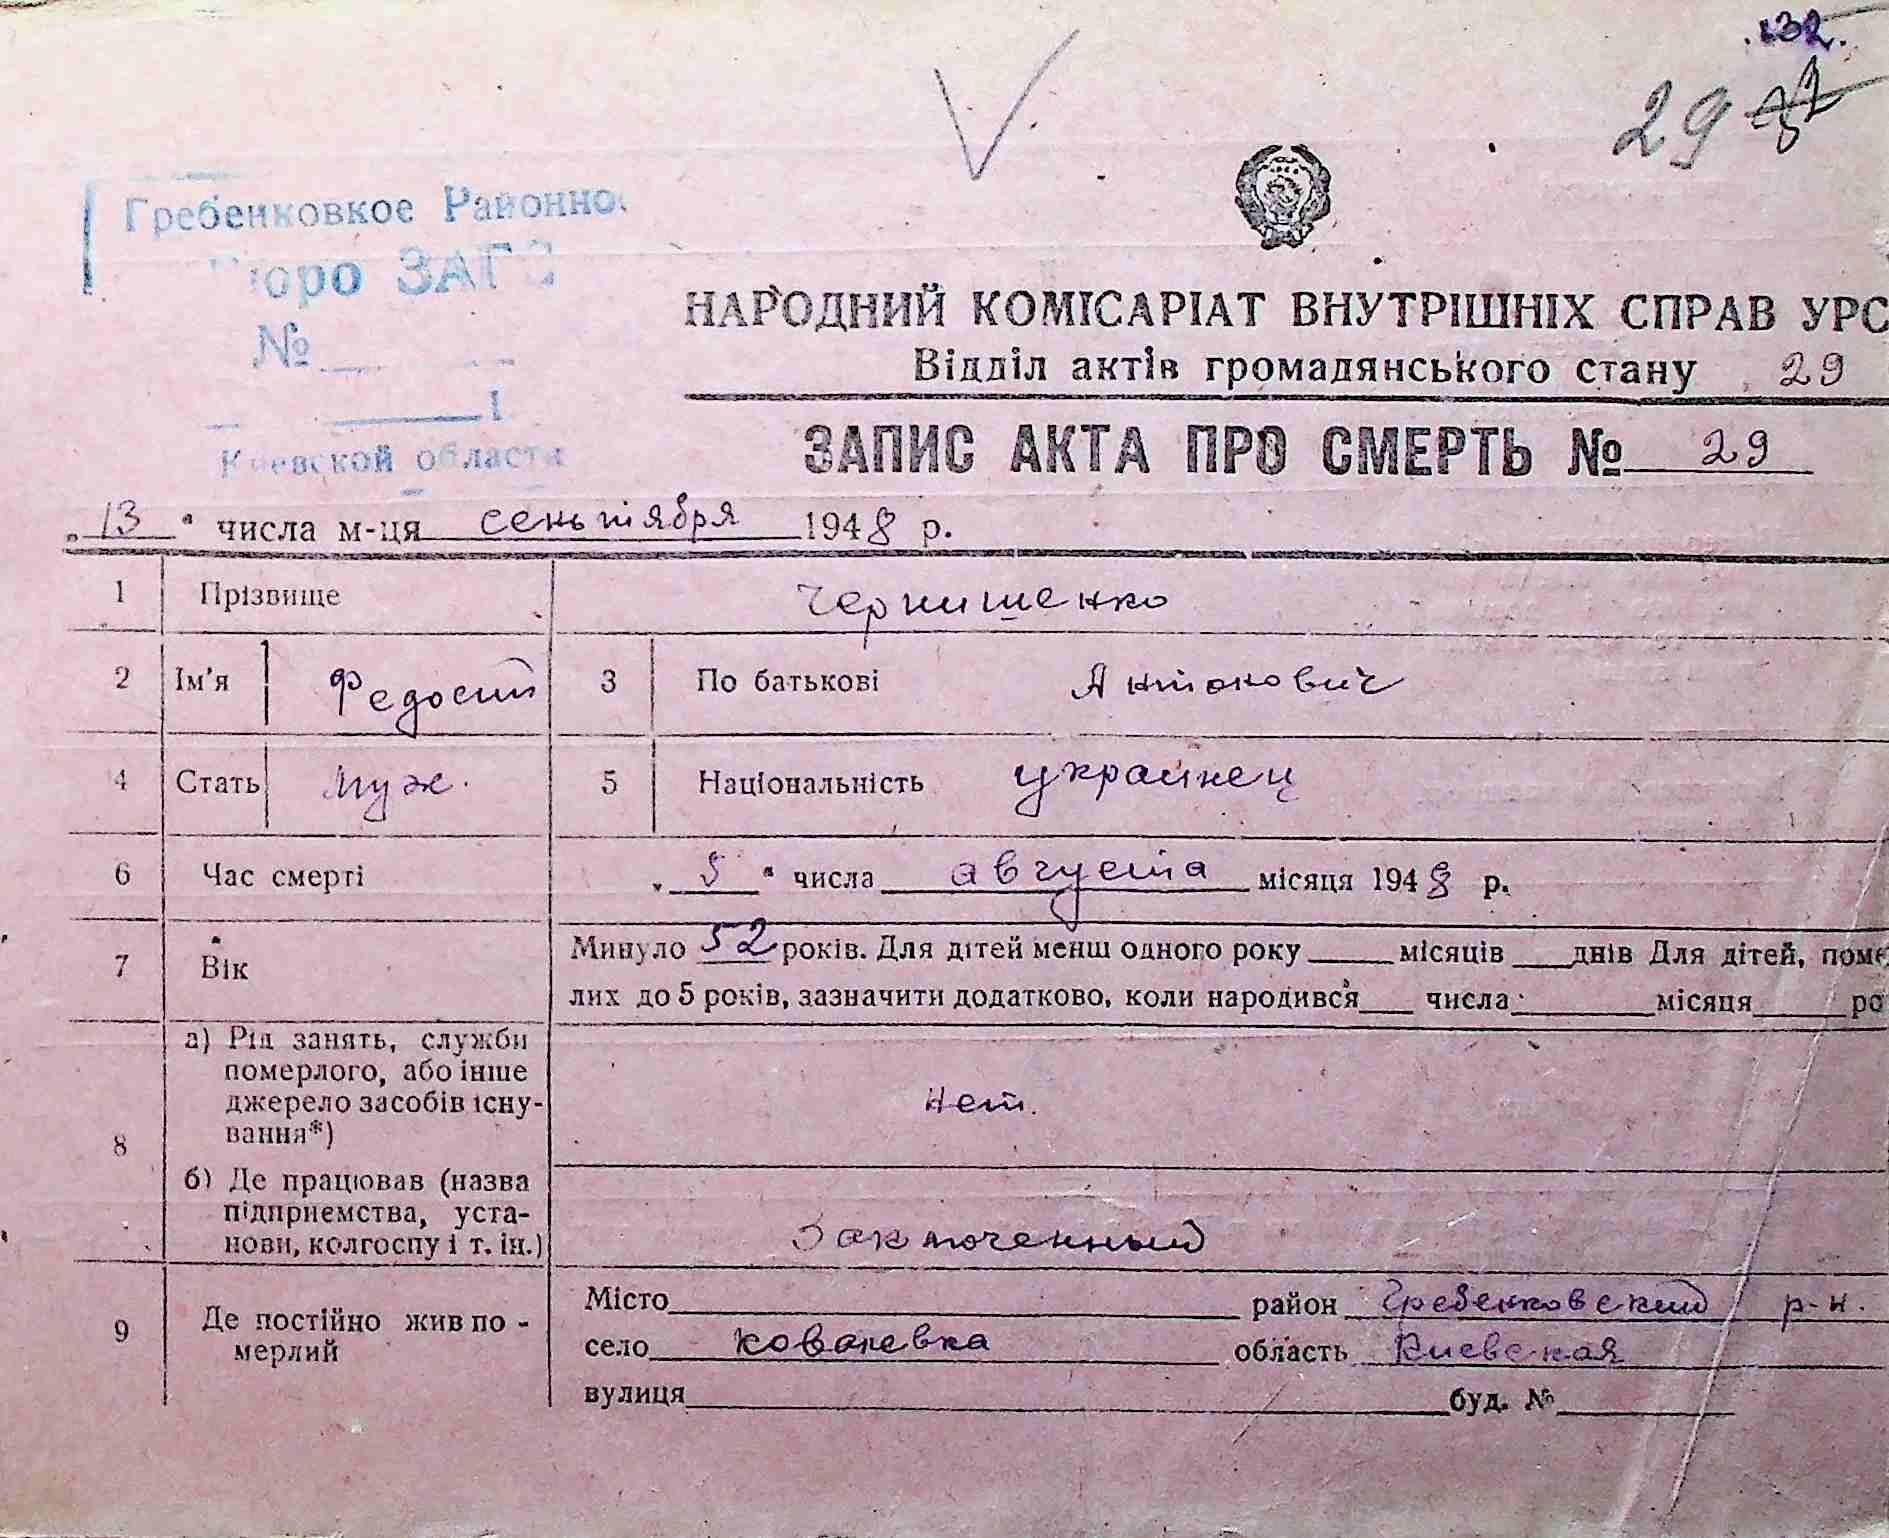 132.
29
Гребенковкое Районное
Бюро ЗАГС
№
Киевской области
НАРОДНИЙ КОМІСАРІАТ ВНУТРІШНІХ СПРАВ УРС
Відділ актів громадянського стану 29
ЗАПИС АКТА ПРО СМЕРТЬ № 29
„13" числа м-ця сеньтября 1948 р.
1 Прізвище Чернишенко
2 Ім'я Федосий 3 По батькові Антонович
4 Стать муж. 5 Національність украинец
6 Час смерті „5" числа августа місяця 1948 р.
7 Вік Минуло 52 років. Для дітей менш одного року місяців днів Для дітей, поме
лих до 5 років, зазначити додатково, коли народився числа місяця ро
8 а) Рід занять, служби
померлого, або інше
джерело засобів існу-
вання*)
нет.
б) Де працював (назва
підприємства, уста-
нови, колгоспу і т. ін.)
Заключенный
9 Де постійно жив по-
мерлий
Місто район Гребенковский р-н.
село Ковалевка область Киевская
вулиця буд. №